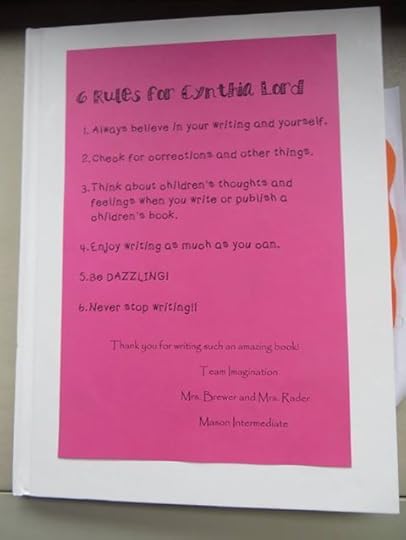 6 Rules for Cynthia Lord
1. Always believe in your writing and yourself.
2. Check for corrections and other things.
3. Think about children's thoughts and
feelings when you write or publish a
children's book.
4. Enjoy writing as much as you can.
5. Be DAZZLING!
6. Never stop writing!!
Thank you for writing such an amazing book!
Team Imagination
Mrs. Brewer and Mrs. Rader
Mason Intermediate